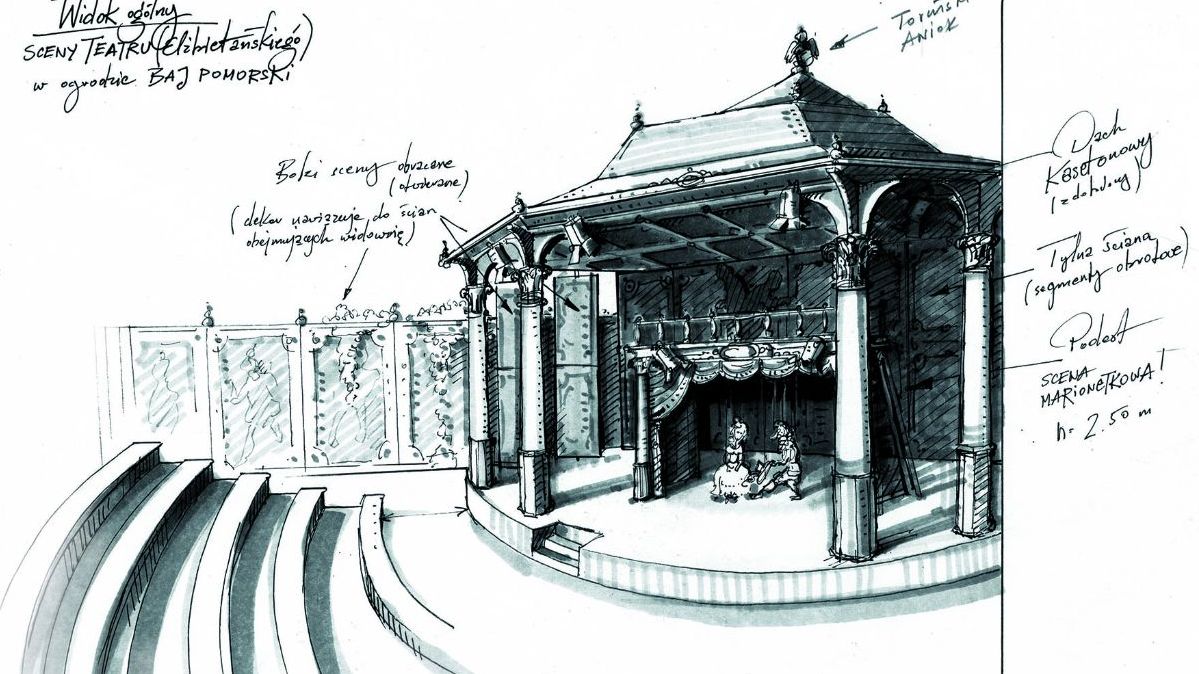 Widok ogólny
SCENY TEATRU (Elżbietańskiego)
w ogrodzie BAJ POMORSKI
Toruński
ANIOŁ
Boki sceny obracane
(otwierane)
(dekor nawiązuje do ścian
obejmujących widownię)
Dach
Kasetonowy
(zdobiony)
Tylna ściana
(segmenty obrotowe)
Podest
SCENA
MARIONETKOWA!
h= 2.50 m